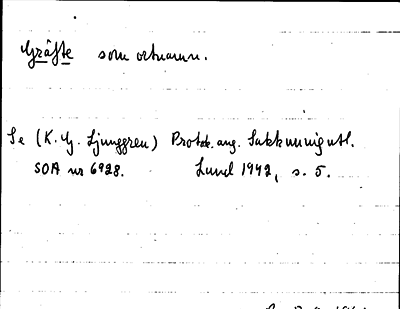 Gräfte som ortnamn.
Se (K. G. Ljunggren) Protok. ang. Sakkunnigutl.
SOA nr 6928. Lund 1942, s. 5.